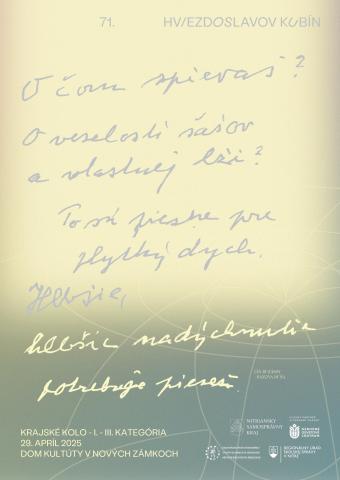 71. HVIEZDOSLAVOV KUBÍN
O čom spievaš?
O veselosti šašov
a vlastnej lži?
To sú piesne pre
plytký dych.
Hlbšie,
hlbšie nadýchnutie
potrebuje pieseň.
KRAJSKÉ KOLO - I. - III. KATEGÓRIA
29. APRÍL 2025
DOM KULTÚTY V NOVÝCH ZÁMKOCH
NITRIANSKY
SAMOSPRÁVNY
KRAJ
NÁRODNÉ
OSVETOVÉ
CENTRUM
REGIONÁLNY ÚRAD
ŠKOLSKEJ SPRÁVY
V NITRE